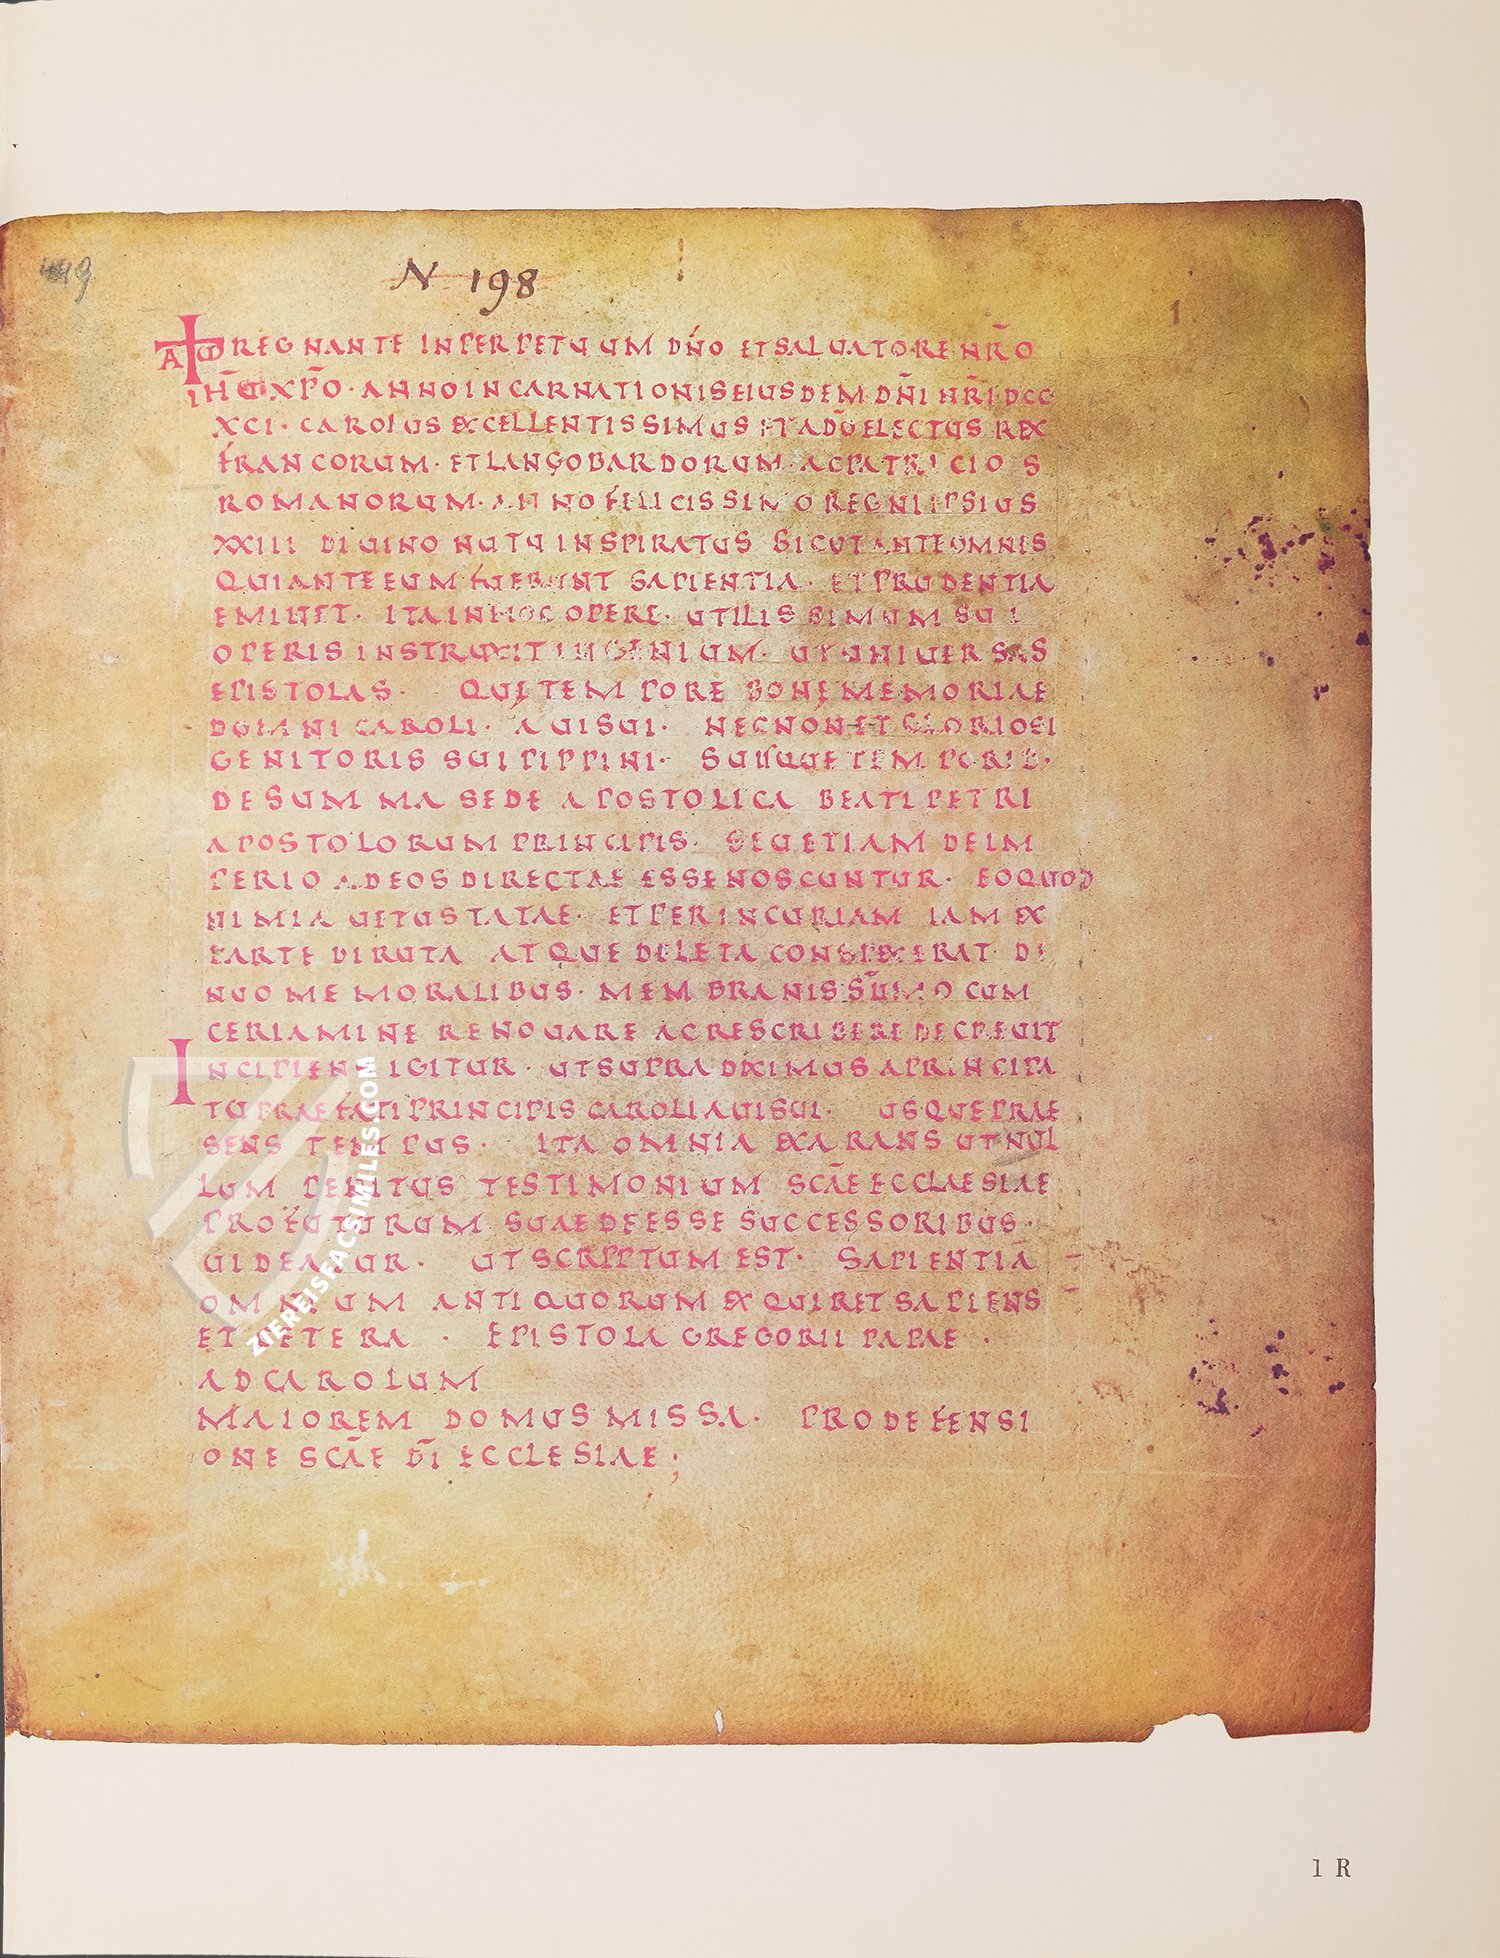 449
N 198
1.
A ω REGNANTE IN PERPETUUM DN̄O ET SALUATORE NR̄O
IHŪ XP̄O · ANNO INCARNATIONIS EIUSDEM DN̄I NR̄I DCC
XCI · CAROLUS EXCELLENTISSIMUS ET A DŌ ELECTUS REX
FRANCORUM · ET LANGOBARDORUM · AC PATRICIOS
ROMANORUM · ANNO FELICISSIMO REGNI IPSIUS
XXIII DIUINO NUTU INSPIRATUS SICUT ANTE OMNIS
QUI ANTE EUM FUERUNT SAPIENTIA · ET PRUDENTIA
EMINET · ITA IN HOC OPERE · UTILISSIMUM SUI
OPERIS INSTRUXIT INGENIUM · UT UNIUERSAS
EPISTOLAS · QUE TEMPORE BONE MEMORIAE
DOMNI CAROLI · AUISUI · NEC NON ET GLORIOSI
GENITORIS SUI PIPPINI · SUISQUE TEMPORIB·
DE SUMMA SEDE APOSTOLICA BEATI PETRI
APOSTOLORUM PRINCIPIS · SEU ETIAM DE IM
PERIO ADEOS DIRECTAE ESSE NOSCUNTUR · EO QUOD
NIMIA UETUSTATAE · ET PER INCURIAM IAM EX
PARTE DIRUTA ATQUE DELETA CONSPEXERAT · DE
NUO MEMORALIBUS · MEMBRANIS SŪMO CUM
CERTAMINE RENOUARE AC RESCRIBERE DECREUIT
INCIPIENS IGITUR · UT SUPRA DIXIMUS A PRINCIPA
TU PRAEFATI PRINCIPIS CAROLI AUISUI · USQUE PRAE
SENS TEMPUS · ITA OMNIA EXARANS UT NUL
LUM PENITUS TESTIMONIUM SCĀE ECCLAESIAE
PROFUTURUM SUAE DEESSE SUCCESSORIBUS ·
UIDEATUR · UT SCRIPTUM EST · SAPIENTIA
OMNIUM ANTIQUORUM EXQUIRET SAPIENS
ET CETERA · EPISTOLA GREGORII PAPAE ·
AD CAROLUM
MAIOREM DOMUS MISSA · PRO DEFENSI
ONE SCĀE DĪ ECCLESIAE ;
ZIEREISFACSIMILES.COM
1 R